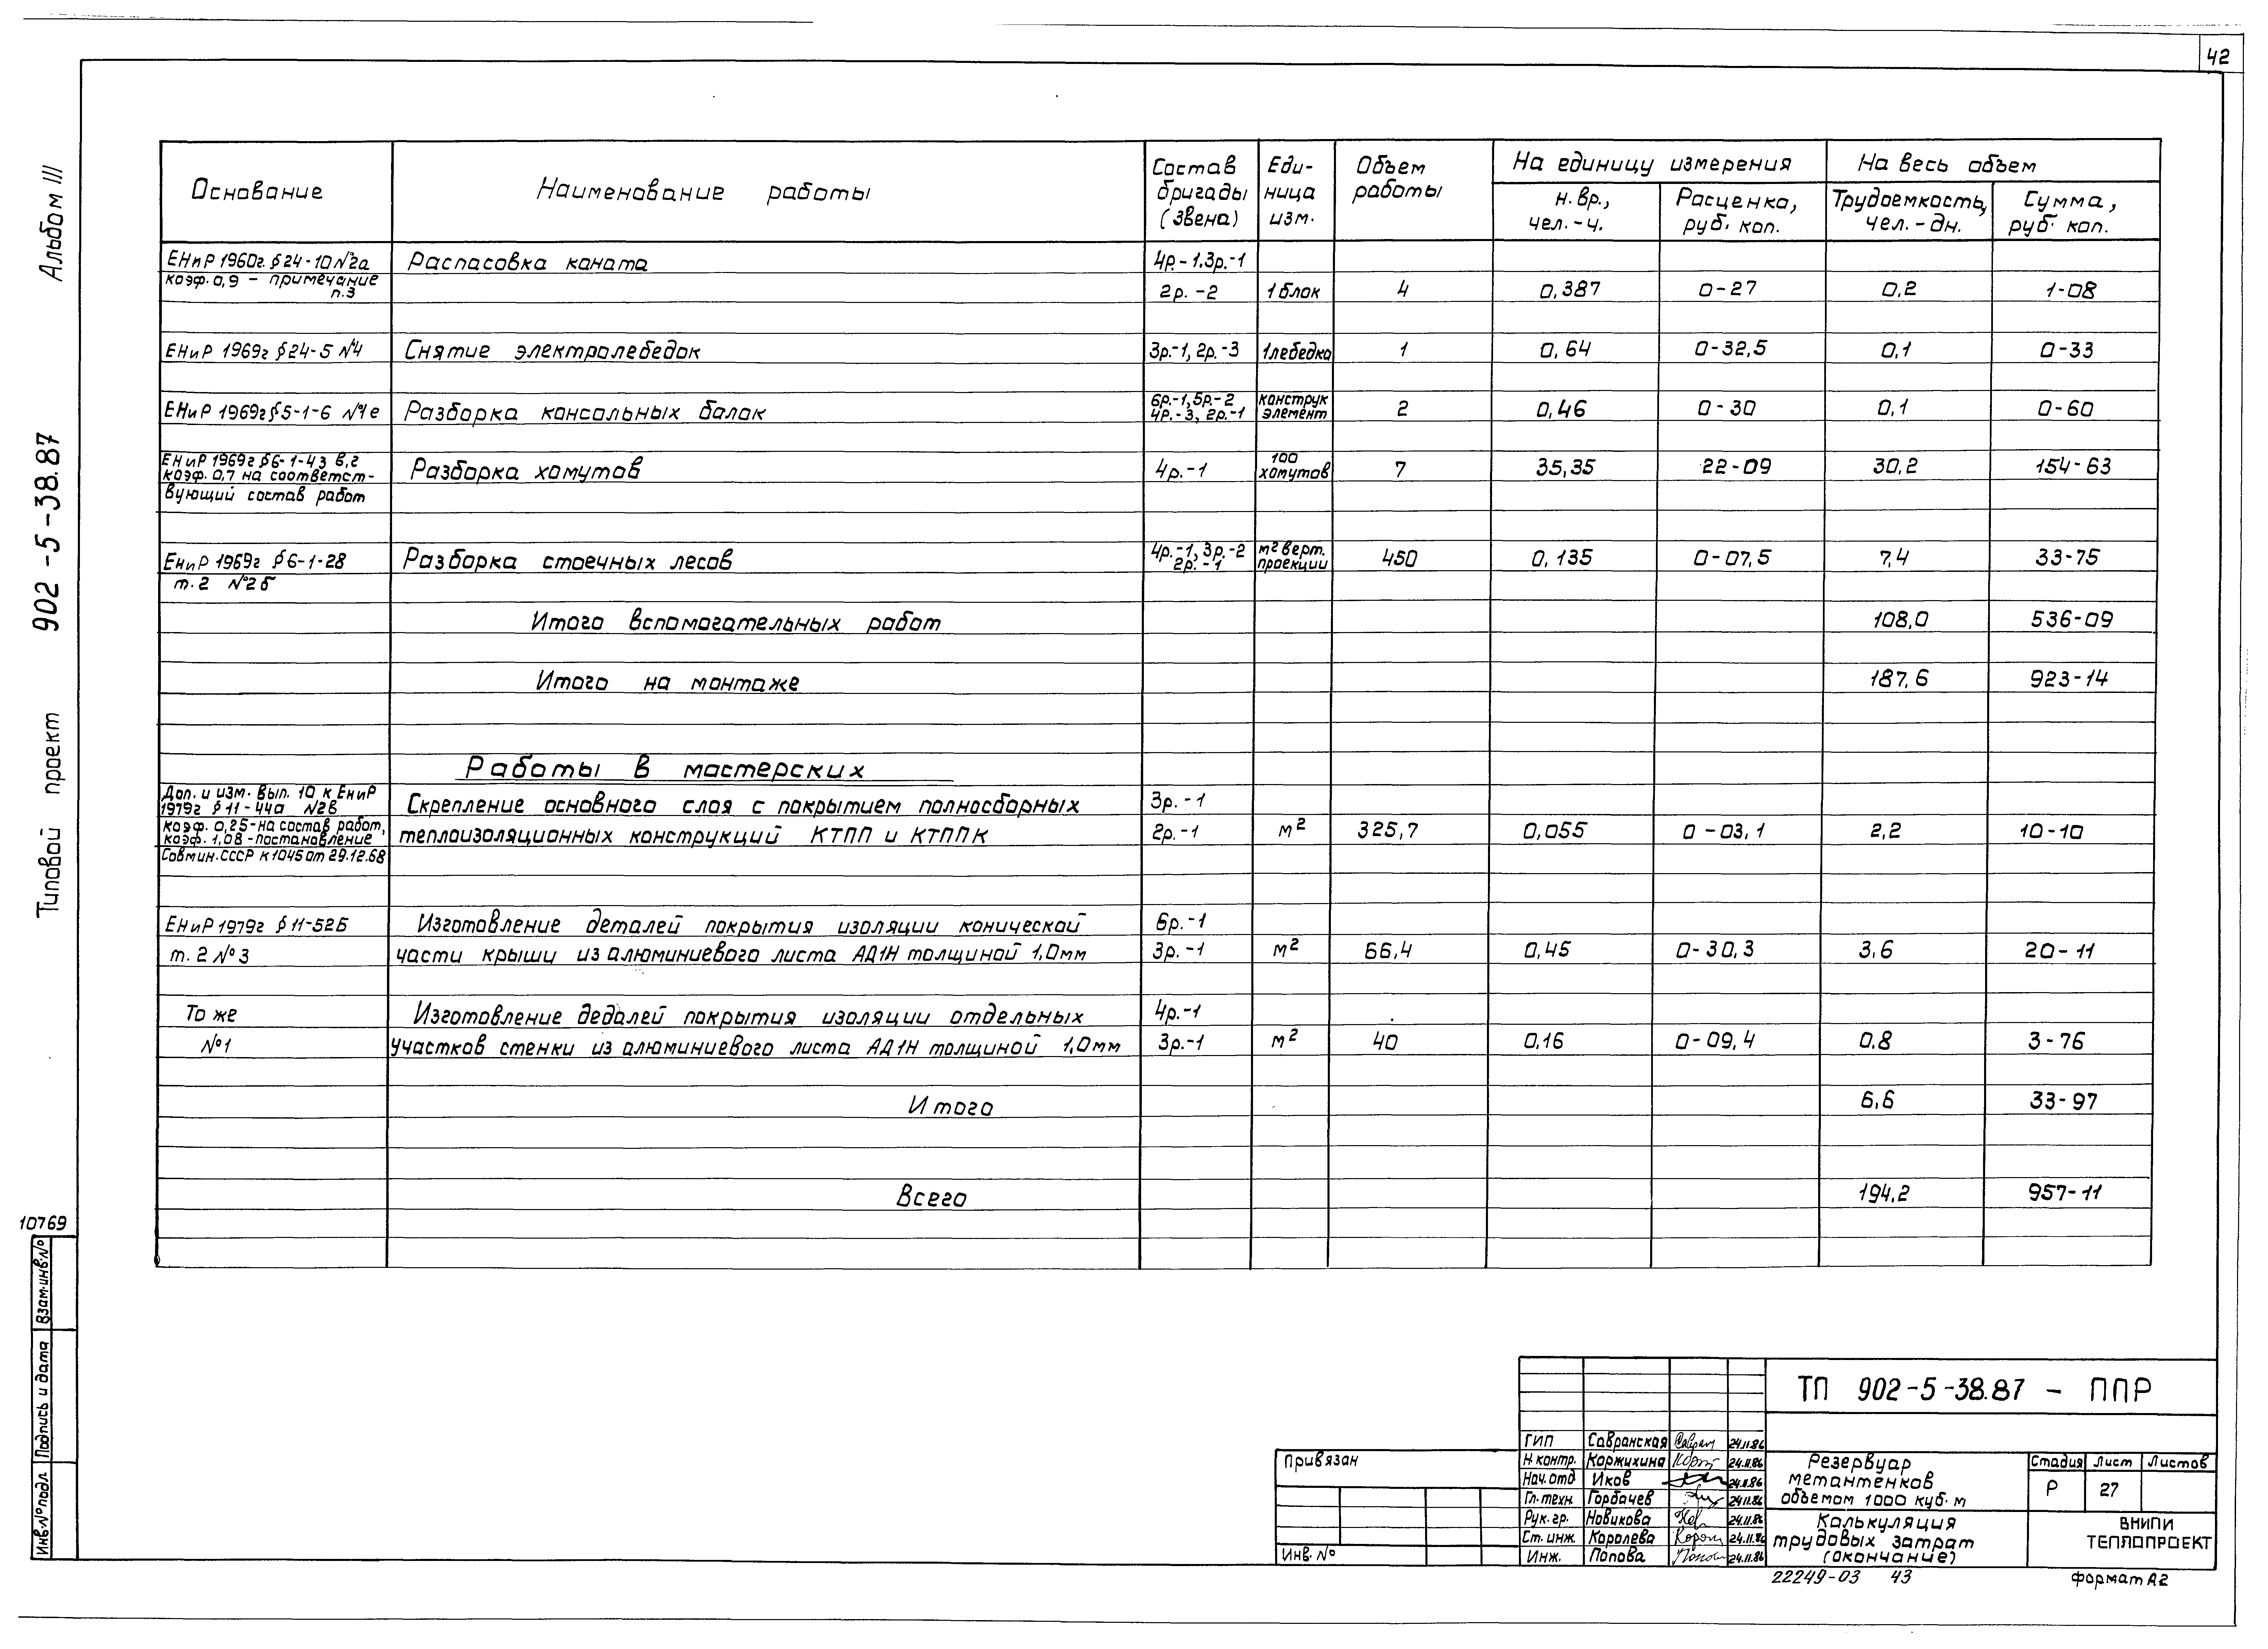 42
Альбом III
Типовой проект 902-5-38.87
Основание
Наименование работы
Состав бригады (звена)
Еди-ница изм.
Объем работы
На единицу измерения
На весь объем
н.вр., чел.-ч.
Расценка, руб. коп.
Трудоемкость, чел.-дн.
Сумма, руб. коп.
ЕНиР 1960г. §24-10 №2а Распасовка каната 4р.-1.3р.-1
коэф. 0,9 - примечание п.3 2р.-2 1 блок 4 0,387 0-27 0,2 1-08
ЕНиР 1969г §24-5 №4 Снятие электролебедок 3р.-1, 2р.-3 1лебедка 1 0,64 0-32,5 0,1 0-33
ЕНиР 1969г §5-1-6 №1е Разборка консольных балок 6р.-1, 5р.-2 4р.-3, 2р.-1 конструк элемент 2 0,46 0-30 0,1 0-60
ЕНиР 1969г §6-1-43 в,г
коэф. 0,7 на соответст- Разборка хомутов 4р.-1 100 хомутов 7 35,35 22-09 30,2 154-63
вующий состав работ
ЕНиР 1969г §6-1-28 Разборка стоечных лесов 4р.-1, 3р.-2 2р.-1 м² верт. проекции 450 0,135 0-07,5 7,4 33-75
т.2 №2б
Итого вспомогательных работ 108,0 536-09
Итого на монтаже 187,6 923-14
Работы в мастерских
Доп. и изм. вып. 10 к ЕНиР
1979г §11-44а №2в Скрепление основного слоя с покрытием полносборных 3р.-1
коэф. 0,25-на состав работ,
коэф. 1,08-постановление теплоизоляционных конструкций КТПП и КТППК 2р.-1 м² 325,7 0,055 0-03,1 2,2 10-10
Совмин.СССР к 1045 от 29.12.68
ЕНиР 1979г §11-52Б Изготовление деталей покрытия изоляции конической 6р.-1
т.2 №3 части крыши из алюминиевого листа АД1Н толщиной 1,0мм 3р.-1 м² 66,4 0,45 0-30,3 3,6 20-11
То же Изготовление дедалей покрытия изоляции отдельных 4р.-1
№1 участков стенки из алюминиевого листа АД1Н толщиной 1,0мм 3р.-1 м² 40 0,16 0-09,4 0,8 3-76
Итого 6,6 33-97
Всего 194,2 957-11
10769
Инв.№подл. Подпись и дата Взам.инв.№
Привязан
Инв. №
ГИП Савранская 24.11.86
Н.контр. Коржихина 24.11.86
Нач.отд Иков 24.11.86
Гл.техн. Горбачев 24.11.86
Рук.гр. Новикова 24.11.86
Ст.инж. Королева 24.11.86
Инж. Попова 24.11.86
ТП 902-5-38.87 - ППР
Резервуар
метантенков
объемом 1000 куб.м
Стадия Лист Листов
Р 27
Калькуляция
трудовых затрат
(окончание)
ВНИПИ
ТЕПЛОПРОЕКТ
22249-03 43
Формат А2